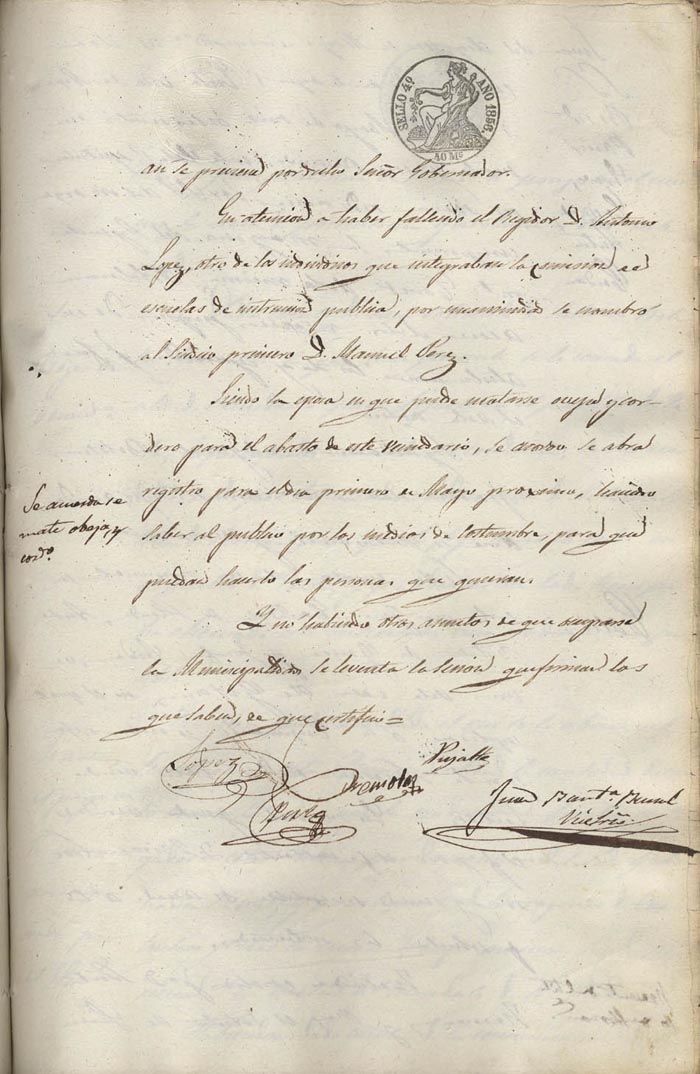 SELLO 4º AÑO 1856.
40 Ms.
an se preened por dicho Señor Gobernador.
En atencion a haber fallecido el Regidor D. Antonio
Lopez, otro de los individuos que integraban la comision de
escuelas de instruccion publica, por unanimidad se nombró
al Sindico primero D. Manuel Perez.
Siendo la epoca en que puede matarse oveja y cor-
dero para el abasto de este vecindario, se acordo se abra
registro para el dia primero de Mayo proximo, haciendo
saber al publico por los medios de costumbre, para que
puedan hacerlo las personas que quieran.
Se acuerda se
mate obeja, y
cordo.
Y no habiendo otros asuntos de que ocuparse
la Municipalidad se levanta la sesion que firman los
que saben, de que certifico=
Lopez
Pujalte
Perez
Juan Bauta.